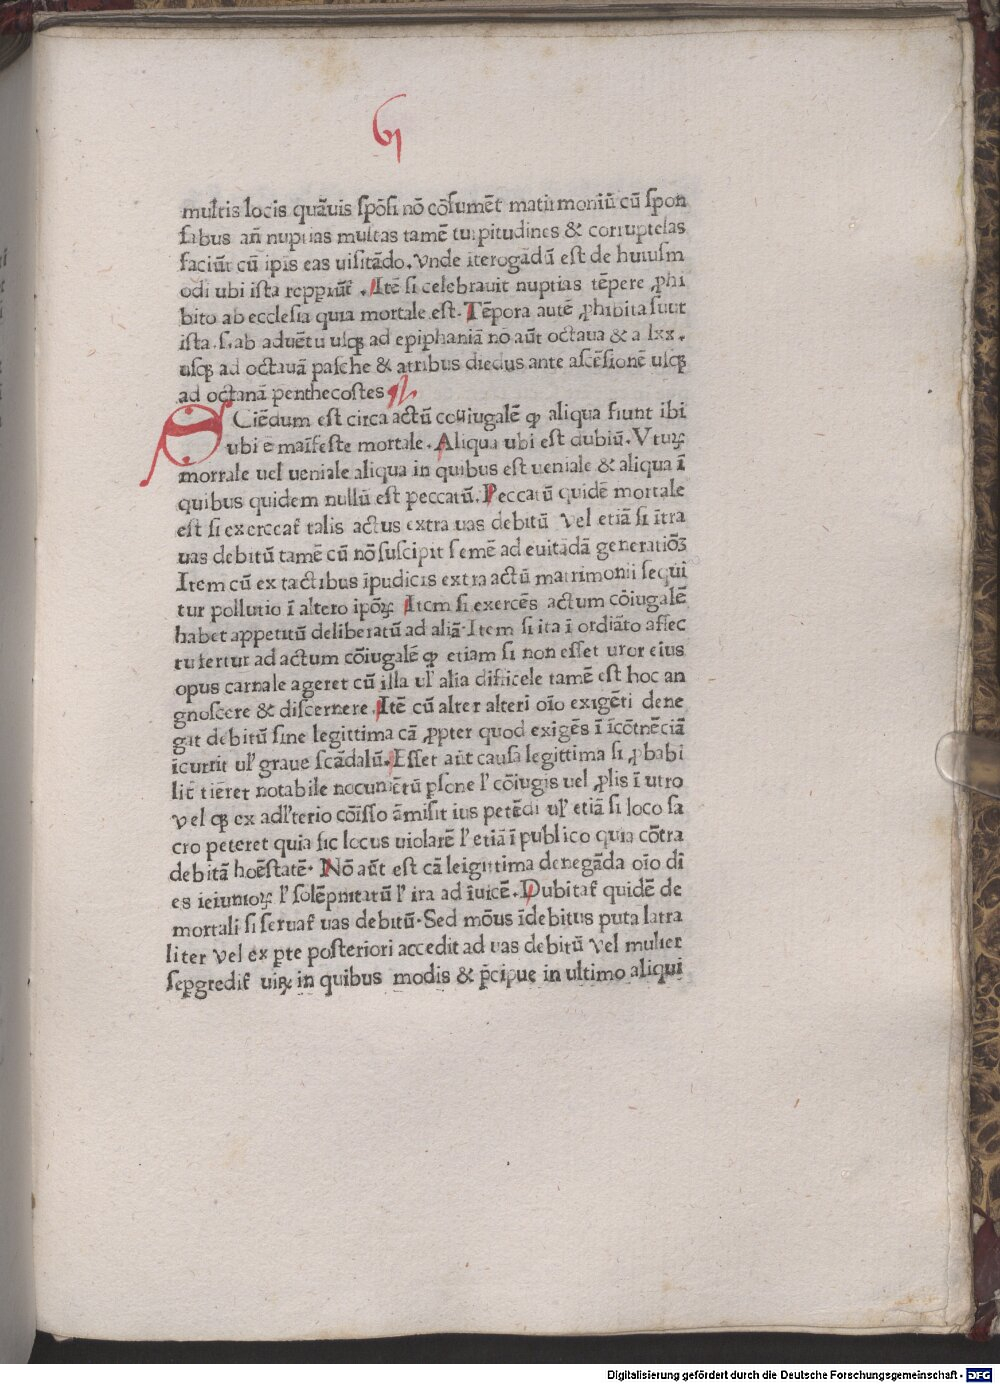 61
multis locis quãuis spõsi nõ cõsumẽt matrimoniũ cũ spon
sabus añ nuptias multas tamẽ turpitudines & corruptelas
faciũt cũ ipis eas uisitãdo. Vnde iterogãdũ est de huiusm
odi ubi ista repperiũt̃. Itẽ si celebrauit nuptias tẽpere ꝓhi
bito ab ecclesia quia mortale est. Tẽpora autẽ ꝓhibita sunt
ista. s. ab aduẽtu usqꝫ ad epiphaniã nõ aũt octaua & a lxx.
usqꝫ ad octauã pasche & atribus diedus ante ascẽsionẽ usqꝫ
ad octanã penthecostes
SCiẽdum est circa actũ coniugalẽ ꝙ aliqua fiunt ibi
ubi ẽ maĩfeste mortale. Aliqua ubi est dubiũ. Vtuꝝ
mortale uel ueniale aliqua in quibus est ueniale & aliqua ĩ
quibus quidem nullũ est peccatũ. Peccatũ quidẽ mortale
est si exerceat̃ talis actus extra uas debitũ Vel etiã si ĩtra
uas debitũ tamẽ cũ nõ suscipit semẽ ad euitãdã generatiõꝫ
Item cũ ex tactibus ĩpudicis extra actũ matrimonii sequi
tur pollutio ĩ altero ipõꝝ Item si exercẽs actum cõiugalẽ
habet appetitũ deliberatũ ad aliã. Item si ita ĩ ordiãto affec
tu fertur ad actum cõiugalẽ ꝙ etiam si non esset uxor eius
opus carnale ageret cũ illa ul̃ alia difficele tamẽ est hoc an
gnoscere & discernere. Itẽ cũ alter alteri oĩo exigẽti dene
gat debitũ sine legittima cã ꝓpter quod exigẽs ĩ ĩcõtnẽciã
ĩcurrit ul̃ graue scãdalũ. Esset aũt causa legittima si ꝓbabi
lit̃ tiẽret notabile nocumẽtũ ꝑsone l̃ cõiugis uel ꝓlis ĩ utro
vel qꝫ ex adl̃terio cõĩsso ãmisit ius petẽdi ul̃ etiã si loco sa
cro peteret quia sic locus uiolarẽ l̃ etiã ĩ publico quia cõtra
debitã hoẽstatẽ. Nõ aũt est cã leigittima denegãda oĩo di
es ieiunioꝝ l̃ solẽpnitatũ l̃ ira ad ĩuicẽ. Dubitat̃ quidẽ de
mortali si seruat̃ uas debitũ. Sed mõus ĩdebitus puta latra
liter vel ex ꝑte posteriori accedit ad uas debitũ vel mulier
seꝑgredit̃ uiꝝ in quibus modis & p̃cipue in ultimo aliqui
Digitalisierung gefördert durch die Deutsche Forschungsgemeinschaft - DFG